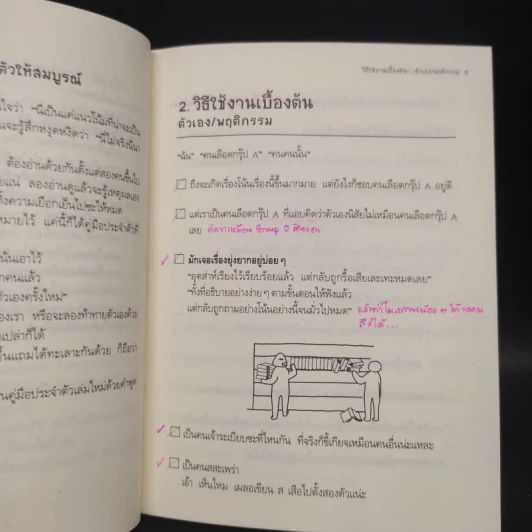 ตัวให้สมบูรณ์
นใจว่า “นี่เป็นแค่แนวโน้มที่น่าจะเป็น
นจะรู้สึกหงุดหงิดว่า “นี่ไม่จริงนี่นา
ต้องอ่านด้วยกันตั้งแต่สองคนขึ้นไป
ยแน่ ลองอ่านดูแล้วจะรู้เหตุผลเอง
ทั้งความเยือกเย็นไปซะให้หมด
หมายไว้ แค่นี้ก็ได้คู่มือประจำตัวที่
นั้นเอาไว้
กคนแล้ว
ตัวเองครั้งใหม่”
ของเรา หรือจะลองท้าทายตัวเองด้วย
เปล่าก็ได้
ขึ้นแถมได้ทะเลาะกันด้วย ก็ถือว่า
นคู่มือประจำตัวเล่มใหม่ด้วยคำพูด
วิธีใช้งานเบื้องต้น : ตัวเอง/พฤติกรรม 9
2. วิธีใช้งานเบื้องต้น
ตัวเอง/พฤติกรรม
“ฉัน” “คนเลือดกรุ๊ป A” “คนคนนั้น”
ถึงจะเกิดเรื่องโน้นเรื่องนี้ขึ้นมากมาย แต่ยังไงก็ชอบคนเลือดกรุ๊ป A อยู่ดี
แต่เราเป็นคนเลือดกรุ๊ป A ที่แอบคิดว่าตัวเองนิสัยไม่เหมือนคนเลือดกรุ๊ป A
เลย Group O
มักเจอเรื่องยุ่งยากอยู่บ่อย ๆ
“อุตส่าห์เรียงไว้เรียบร้อยแล้ว แต่กลับถูกรื้อเสียเละเทะหมดเลย”
“ทั้งที่อธิบายอย่างง่าย ๆ ตามขั้นตอนให้ฟังแล้ว
แต่กลับถูกถามอย่างโน้นอย่างนี้จนมั่วไปหมด”
เป็นคนเจ้าระเบียบซะที่ไหนกัน ที่จริงก็ขี้เกียจเหมือนคนอื่นน่ะแหละ
เป็นคนสสะเพร่า
เอ้า เห็นไหม เผลอเขียน ส เสือไปตั้งสองตัวแน่ะ